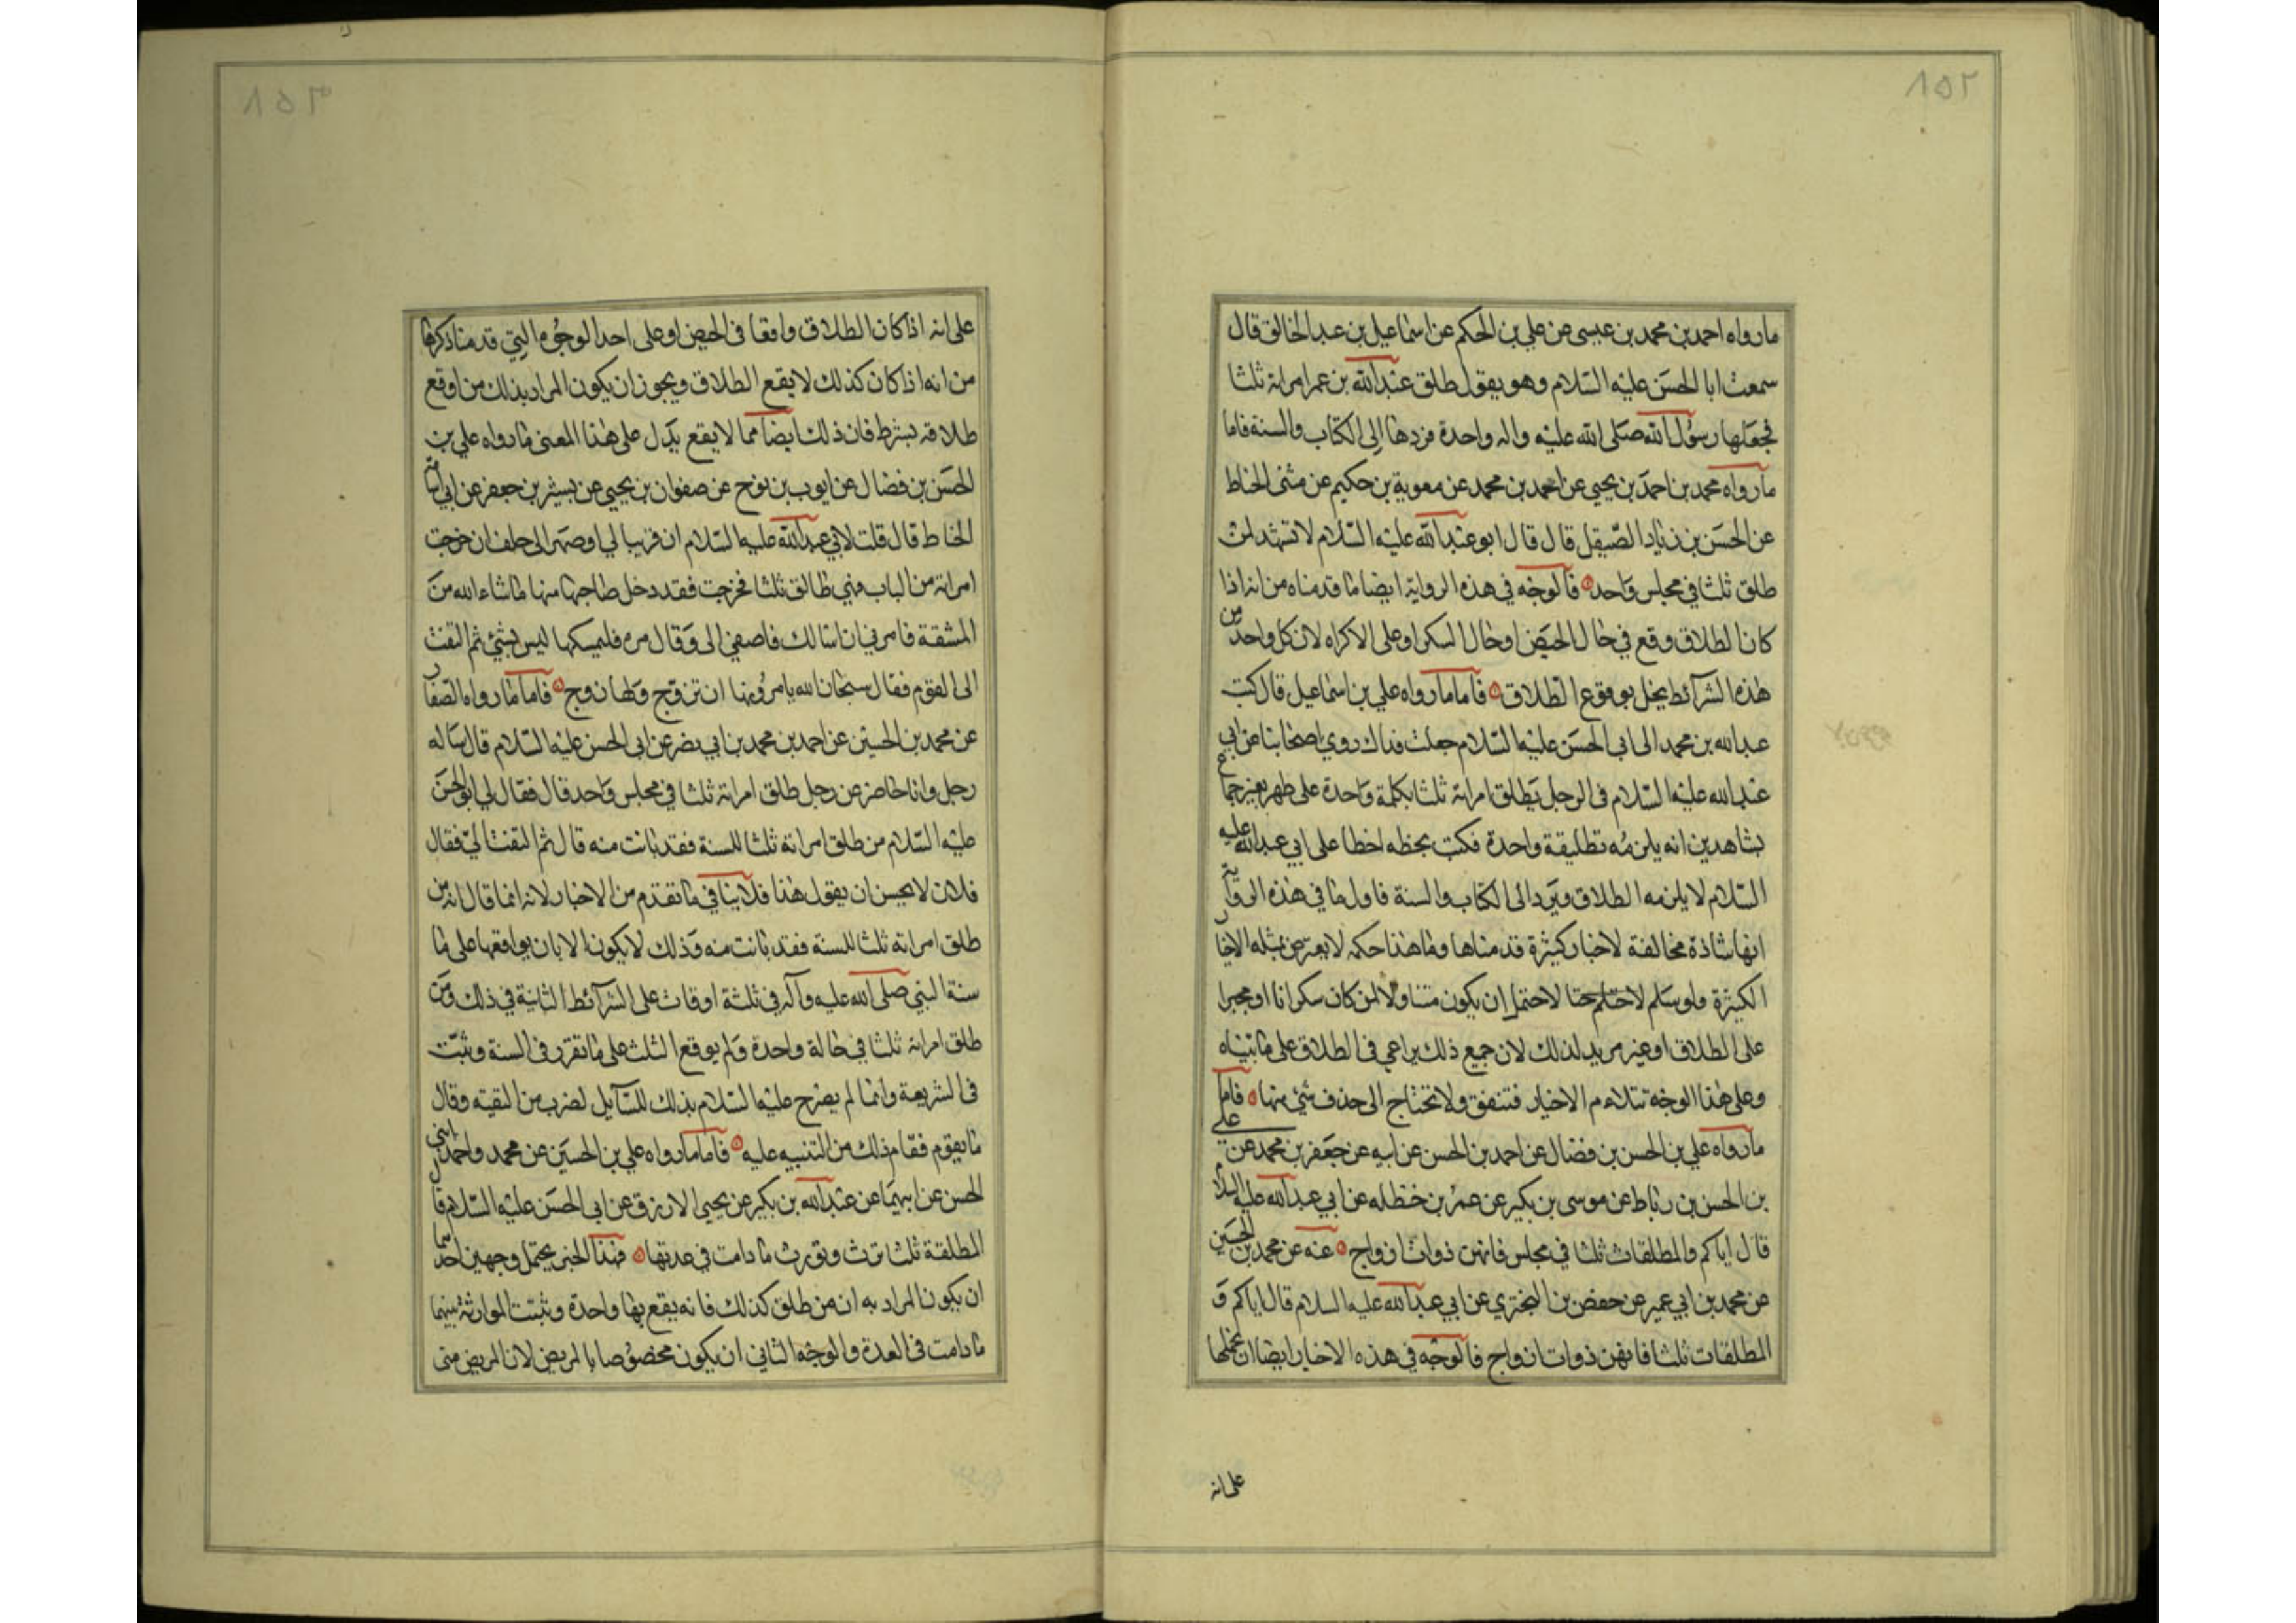 ١٥٢
ما رواه احمد بن محمد بن عيسى عن علي بن الحكم عن اسماعيل بن عبد الخالق قال
سمعت ابا الحسن عليه السلام وهو يقول طلق عبد الله بن عمر امراته ثلثا
فجعلها رسول الله صلى الله عليه واله واحدة فردها الى الكتاب والسنة فاما
ما رواه محمد بن احمد بن يحيى عن احمد بن محمد عن معوية بن حكيم عن مثنى الحناط
عن الحسن بن زياد الصيقل قال قال ابو عبد الله عليه السلام لا تشهد لمن
طلق ثلثا في مجلس واحد فالوجه في هذه الرواية ايضا ما قدمناه من انه اذا
كان الطلاق وقع في حال الحيض او حال السكر او على الاكراه لان كل واحد من
هذه الشرائط يخل بوقوع الطلاق فاما ما رواه علي بن اسماعيل قال كتب
عبد الله بن محمد الى ابي الحسن عليه السلام جعلت فداك روي اصحابنا عن ابي
عبد الله عليه السلام في الرجل يطلق امراته ثلثا بكلمة واحدة على طهر بغير جماع
بشاهدين انه يلزمه تطليقة واحدة فكتب بخطه اخطا على ابي عبد الله عليه
السلام لا يلزمه الطلاق ويرد الى الكتاب والسنة فاول ما في هذه الرواية
انها شاذة مخالفة لاخبار كثيرة قدمناها وما هذا حكمه لا يعترض بمثله الاخبار
الكثيرة ولو سلم لاحتمل ان يكون متناولا لمن كان سكرانا او مجبرا
على الطلاق او غير مريد لذلك لان جميع ذلك يراعي في الطلاق على ما بيناه
وعلى هذا الوجه تتلاءم الاخبار فتتفق ولا تحتاج الى حذف شئ منها فاما
ما رواه علي بن الحسن بن فضال عن احمد بن الحسن عن ابيه عن جعفر بن محمد عن علي
بن الحسن بن رباط عن موسى بن بكير عن عمر بن حنظله عن ابي عبد الله عليه السلام
قال اياكم والمطلقات ثلثا في مجلس فانهن ذوات ازواج عنه عن محمد بن الحسين
عن محمد بن ابي عمير عن حفص بن البختري عن ابي عبد الله عليه السلام قال اياكم و
المطلقات ثلثا فانهن ذوات ازواج فالوجه في هذه الاخبار ايضا ان نحملها
على انه
١٥٣
على انه اذا كان الطلاق واقعا في الحيض او على احد الوجوه التي قدمنا ذكرها
من انه اذا كان كذلك لا يقع الطلاق ويجوز ان يكون المراد بذلك من اوقع
طلاقه بشرط فان ذلك ايضا مما لا يقع يدل على هذا المعنى ما رواه علي بن
الحسن بن فضال عن ايوب بن نوح عن صفوان بن يحيى عن بشير بن جعفر عن ابي اسامة
الحناط قال قلت لابي عبد الله عليه السلام ان قريبا لي او صهرا لي حلف ان خرجت
امراته من الباب فهي طالق ثلثا فخرجت فقد دخل صاحبها منها ما شاء الله من
المشقة فامرني ان اسالك فاصغى الي وقال مره فليمسكها ليس بشئ ثم التفت
الى القوم فقال سبحان الله يامرونها ان تزوج ولها زوج فاما ما رواه الصفار
عن محمد بن الحسين عن احمد بن محمد بن ابي نصر عن ابي الحسن عليه السلام قال ساله
رجل وانا حاضر عن رجل طلق امراته ثلثا في مجلس واحد قال فقال لي ابو الحسن
عليه السلام من طلق امراته ثلثا للسنة فقد بانت منه قال ثم التفت الي فقال
فلان لا يحسن ان يقول هذا فلا ينافي ما تقدم من الاخبار لانه انما قال انه من
طلق امراته ثلثا للسنة فقد بانت منه وذلك لا يكون الا بان يواقعها على ما
سنة النبي صلى الله عليه وآله في ثلثة اوقات على الشرائط الثانية في ذلك ومن
طلق امراته ثلثا في حالة واحدة ولم يوقع الثلث على ما تقرر في السنة وثبت
في الشريعة وانما لم يصرح عليه السلام بذلك للسآيل لضرب من التقيه وقال
ما يقوم فقام ذلك من التنبيه عليه فاما ما رواه علي بن الحسين عن محمد واحمد ابني
الحسن عن ابيهما عن عبد الله بن بكير عن يحيى الازرق عن ابي الحسن عليه السلام قال
المطلقة ثلثا ترث وتورث ما دامت في عدتها فهذا الخبر يحتمل وجهين احدهما
ان يكون المراد به ان من طلق كذلك فانه يقع بها واحدة وثبتت الموارثة بينهما
ما دامت في العدة والوجه الثاني ان يكون مخصوصا بالمريض لان المريض متى